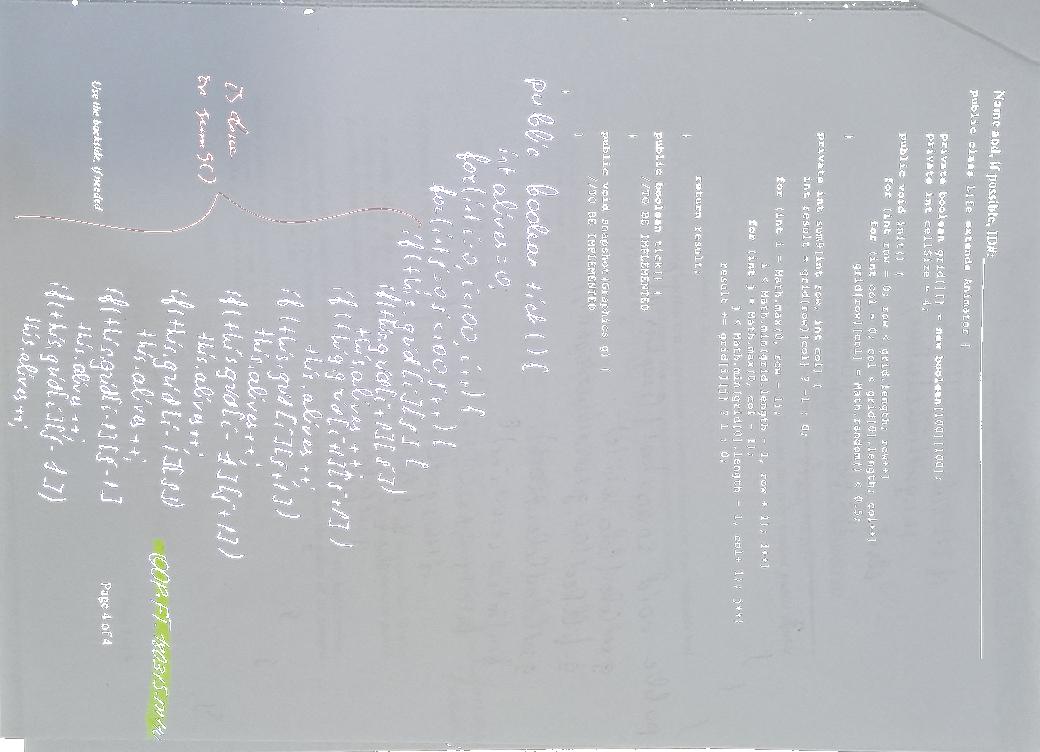 Name and, if possible, JD#:
public class Life extends Animator {
private boolean grid[][] = new boolean[100][100];
private int cellSize = 4;
public void init() {
for (int row = 0; row < grid.length; row++)
for (int col = 0; col < grid[0].length; col++)
grid[row][col] = Math.random() < 0.5;
}
private int sum8(int row, int col) {
int result = grid[row][col] ? -1 : 0;
for (int i = Math.max(0, row - 1);
i < Math.min(grid.length - 1, row + 1); i++)
for (int j = Math.max(0, col - 1);
j < Math.min(grid[0].length - 1, col+ 1); j++)
result += grid[i][j] ? 1 : 0;
return result;
}
public boolean tick() {
//TO BE IMPLEMENTED
}
public void snapshot(Graphics g) {
//TO BE IMPLEMENTED
}
}
public boolean tick() {
int alives = 0;
for (int i = 0; i < 100; i++) {
for (int j = 0; j < 100; j++) {
if (this.grid[i][j]) {
if (this.grid[i+1][j])
this.alives ++;
if (this.grid[i+1][j+1])
this.alives ++;
if (this.grid[i][j+1])
this.alives ++;
if (this.grid[i-1][j+1])
this.alives ++;
if (this.grid[i-1][j])
this.alives ++;
if (this.grid[i-1][j-1]
this.alives ++;
if (this.grid[i][j-1])
this.alives ++;
Is done
in
Use the backside, if needed
Page 4 of 4